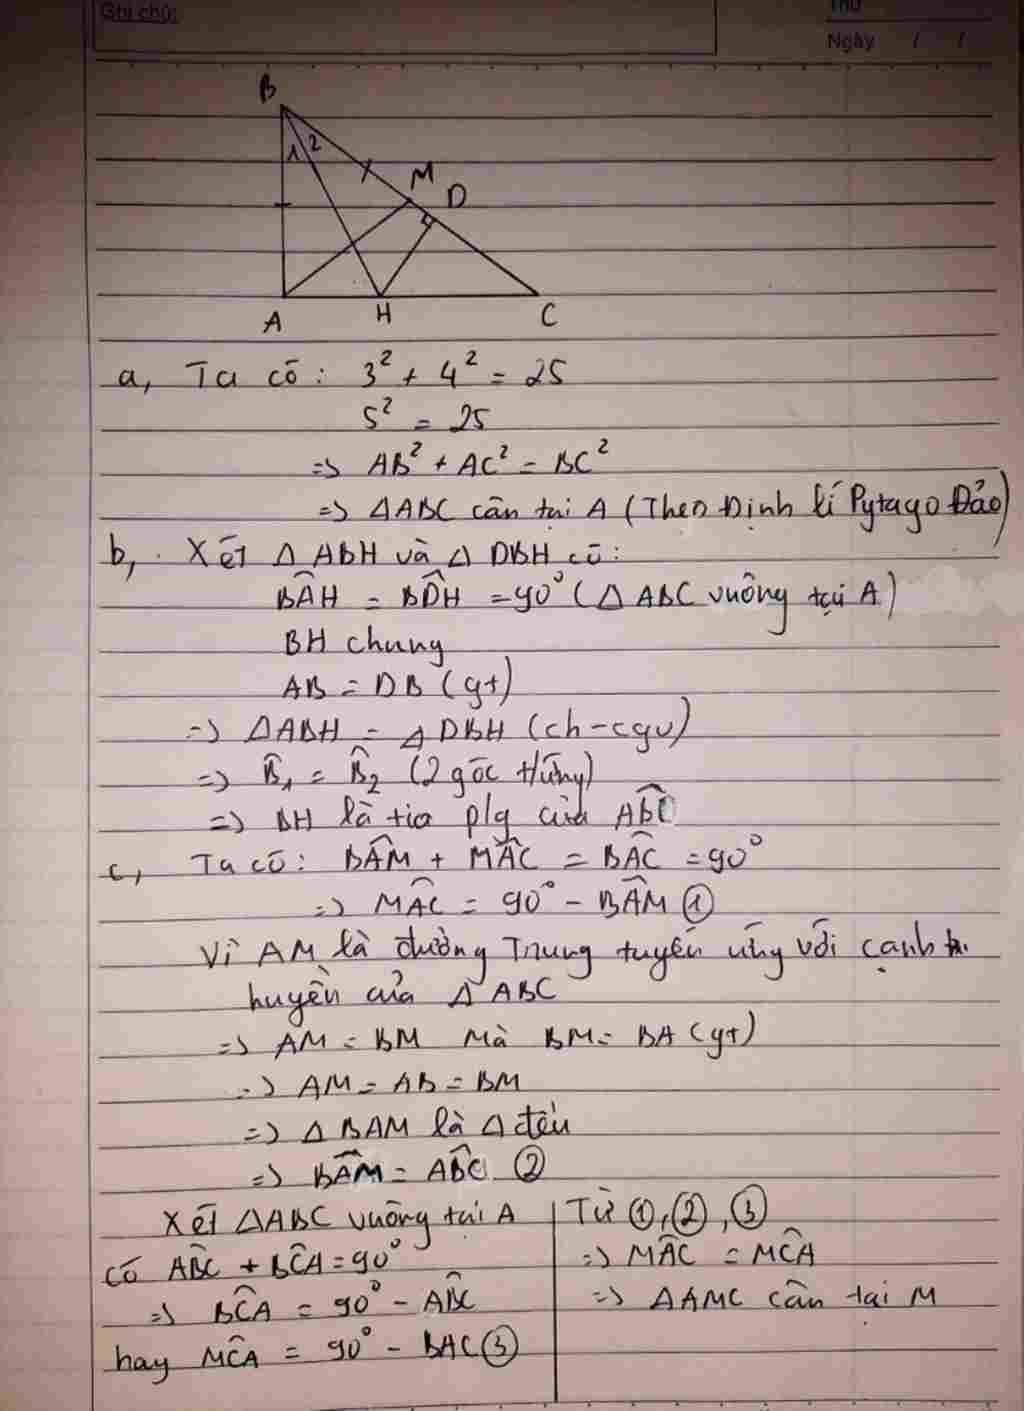 Ghi chú:
Thứ
Ngày / /
B
1 2
M
D
A
H
C
a, Ta có: 3² + 4² = 25
5² = 25
=> AB² + AC² = BC²
=> ΔABC cân tại A (Theo Định lí Pytago Đảo)
b, Xét Δ ABH và Δ DBH có:
BÂH = BD̂H = 90° (Δ ABC vuông tại A)
BH chung
AB = DB (gt)
=> ΔABH = ΔDBH (ch-cgv)
=> B̂₁ = B̂₂ (2 góc t/ứng)
=> BH là tia p/g của AB̂C
c, Ta có: BÂM + MÂC = BÂC = 90°
=> MÂC = 90° - BÂM ①
Vì AM là đường Trung tuyến ứng với cạnh
huyền của Δ ABC
=> AM = BM Mà BM = BA (gt)
=> AM = AB = BM
=> Δ BAM là Δ đều
=> BÂM = AB̂C ②
Xét ΔABC vuông tại A
có AB̂C + BĈA = 90°
=> BĈA = 90° - AB̂C
hay MĈA = 90° - BAC ③
Từ ①, ②, ③
=> MÂC = MĈA
=> ΔAMC cân tại M